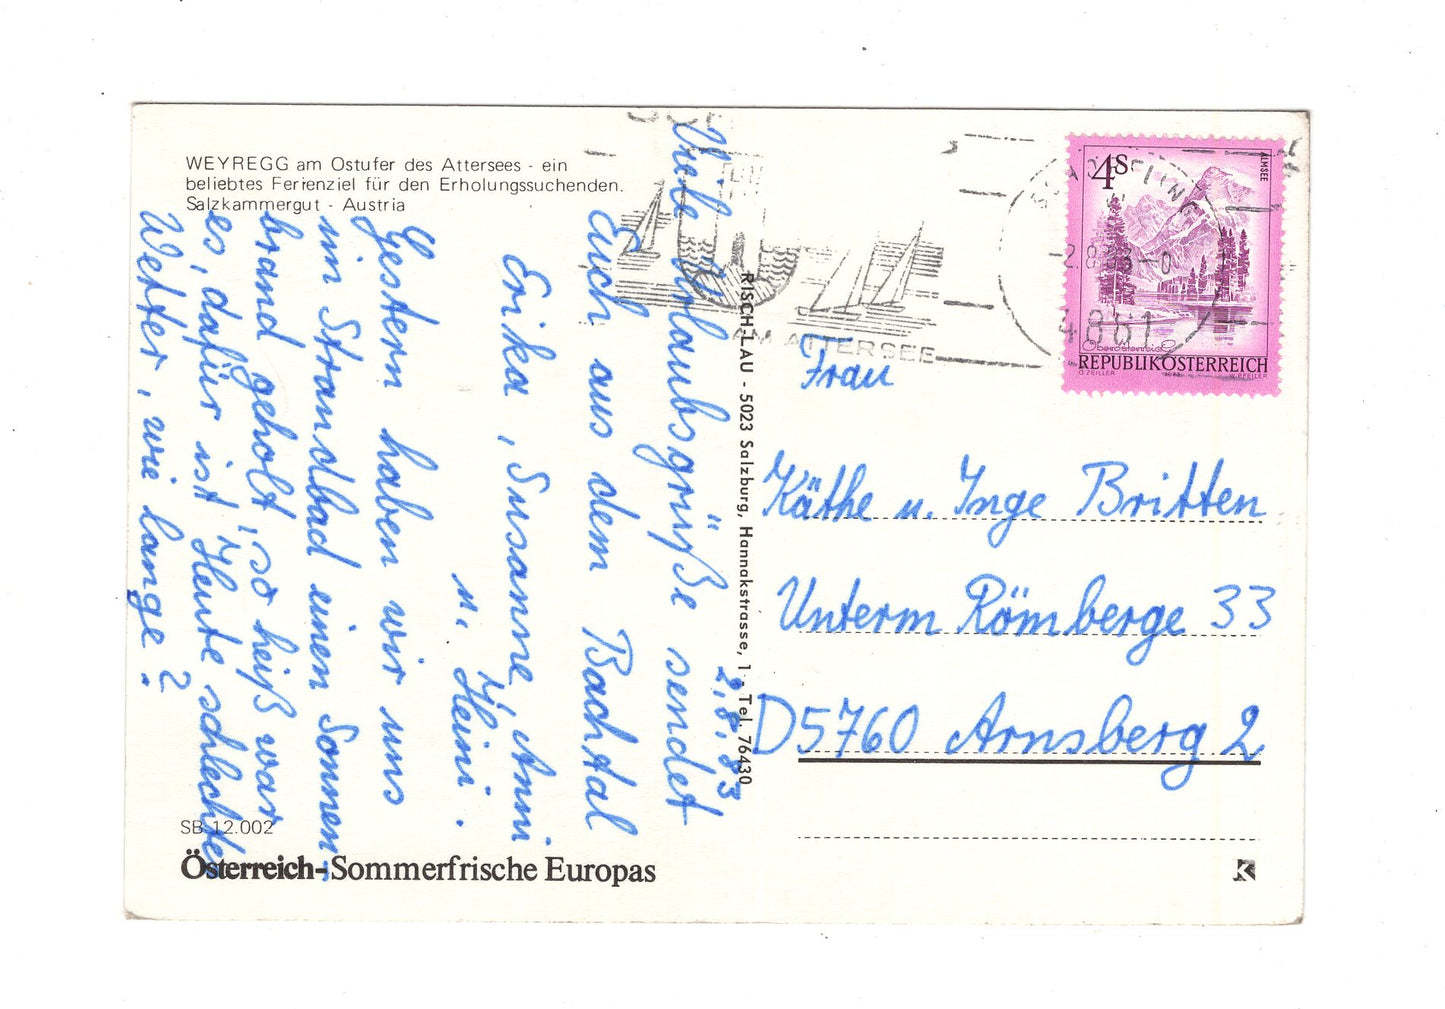 WEYREGG am Ostufer des Attersees - ein
beliebtes Ferienziel für den Erholungssuchenden.
Salzkammergut - Austria
2.8.83
Viele Urlaubsgrüße sendet
Euch aus dem Bachtal
Erika, Susanne, Anni
u. Heini.
Gestern haben wir uns
im Strandbad einen Sonnen-
brand geholt, so heiß war
es, dafür ist Heute schlechtes
Wetter, wie lange?
SB 12.002
Österreich-Sommerfrische Europas
RISCH-LAU - 5023 Salzburg, Hannakstrasse, 1 - Tel. 76430
AM ATTERSEE
-2.8.83-
4861
4S
ALMSEE
Oberösterreich
REPUBLIK ÖSTERREICH
O. ZEILLER
W. PFEILER
Frau
Käthe u. Inge Britten
Unterm Römberge 33
D5760 Arnsberg 2